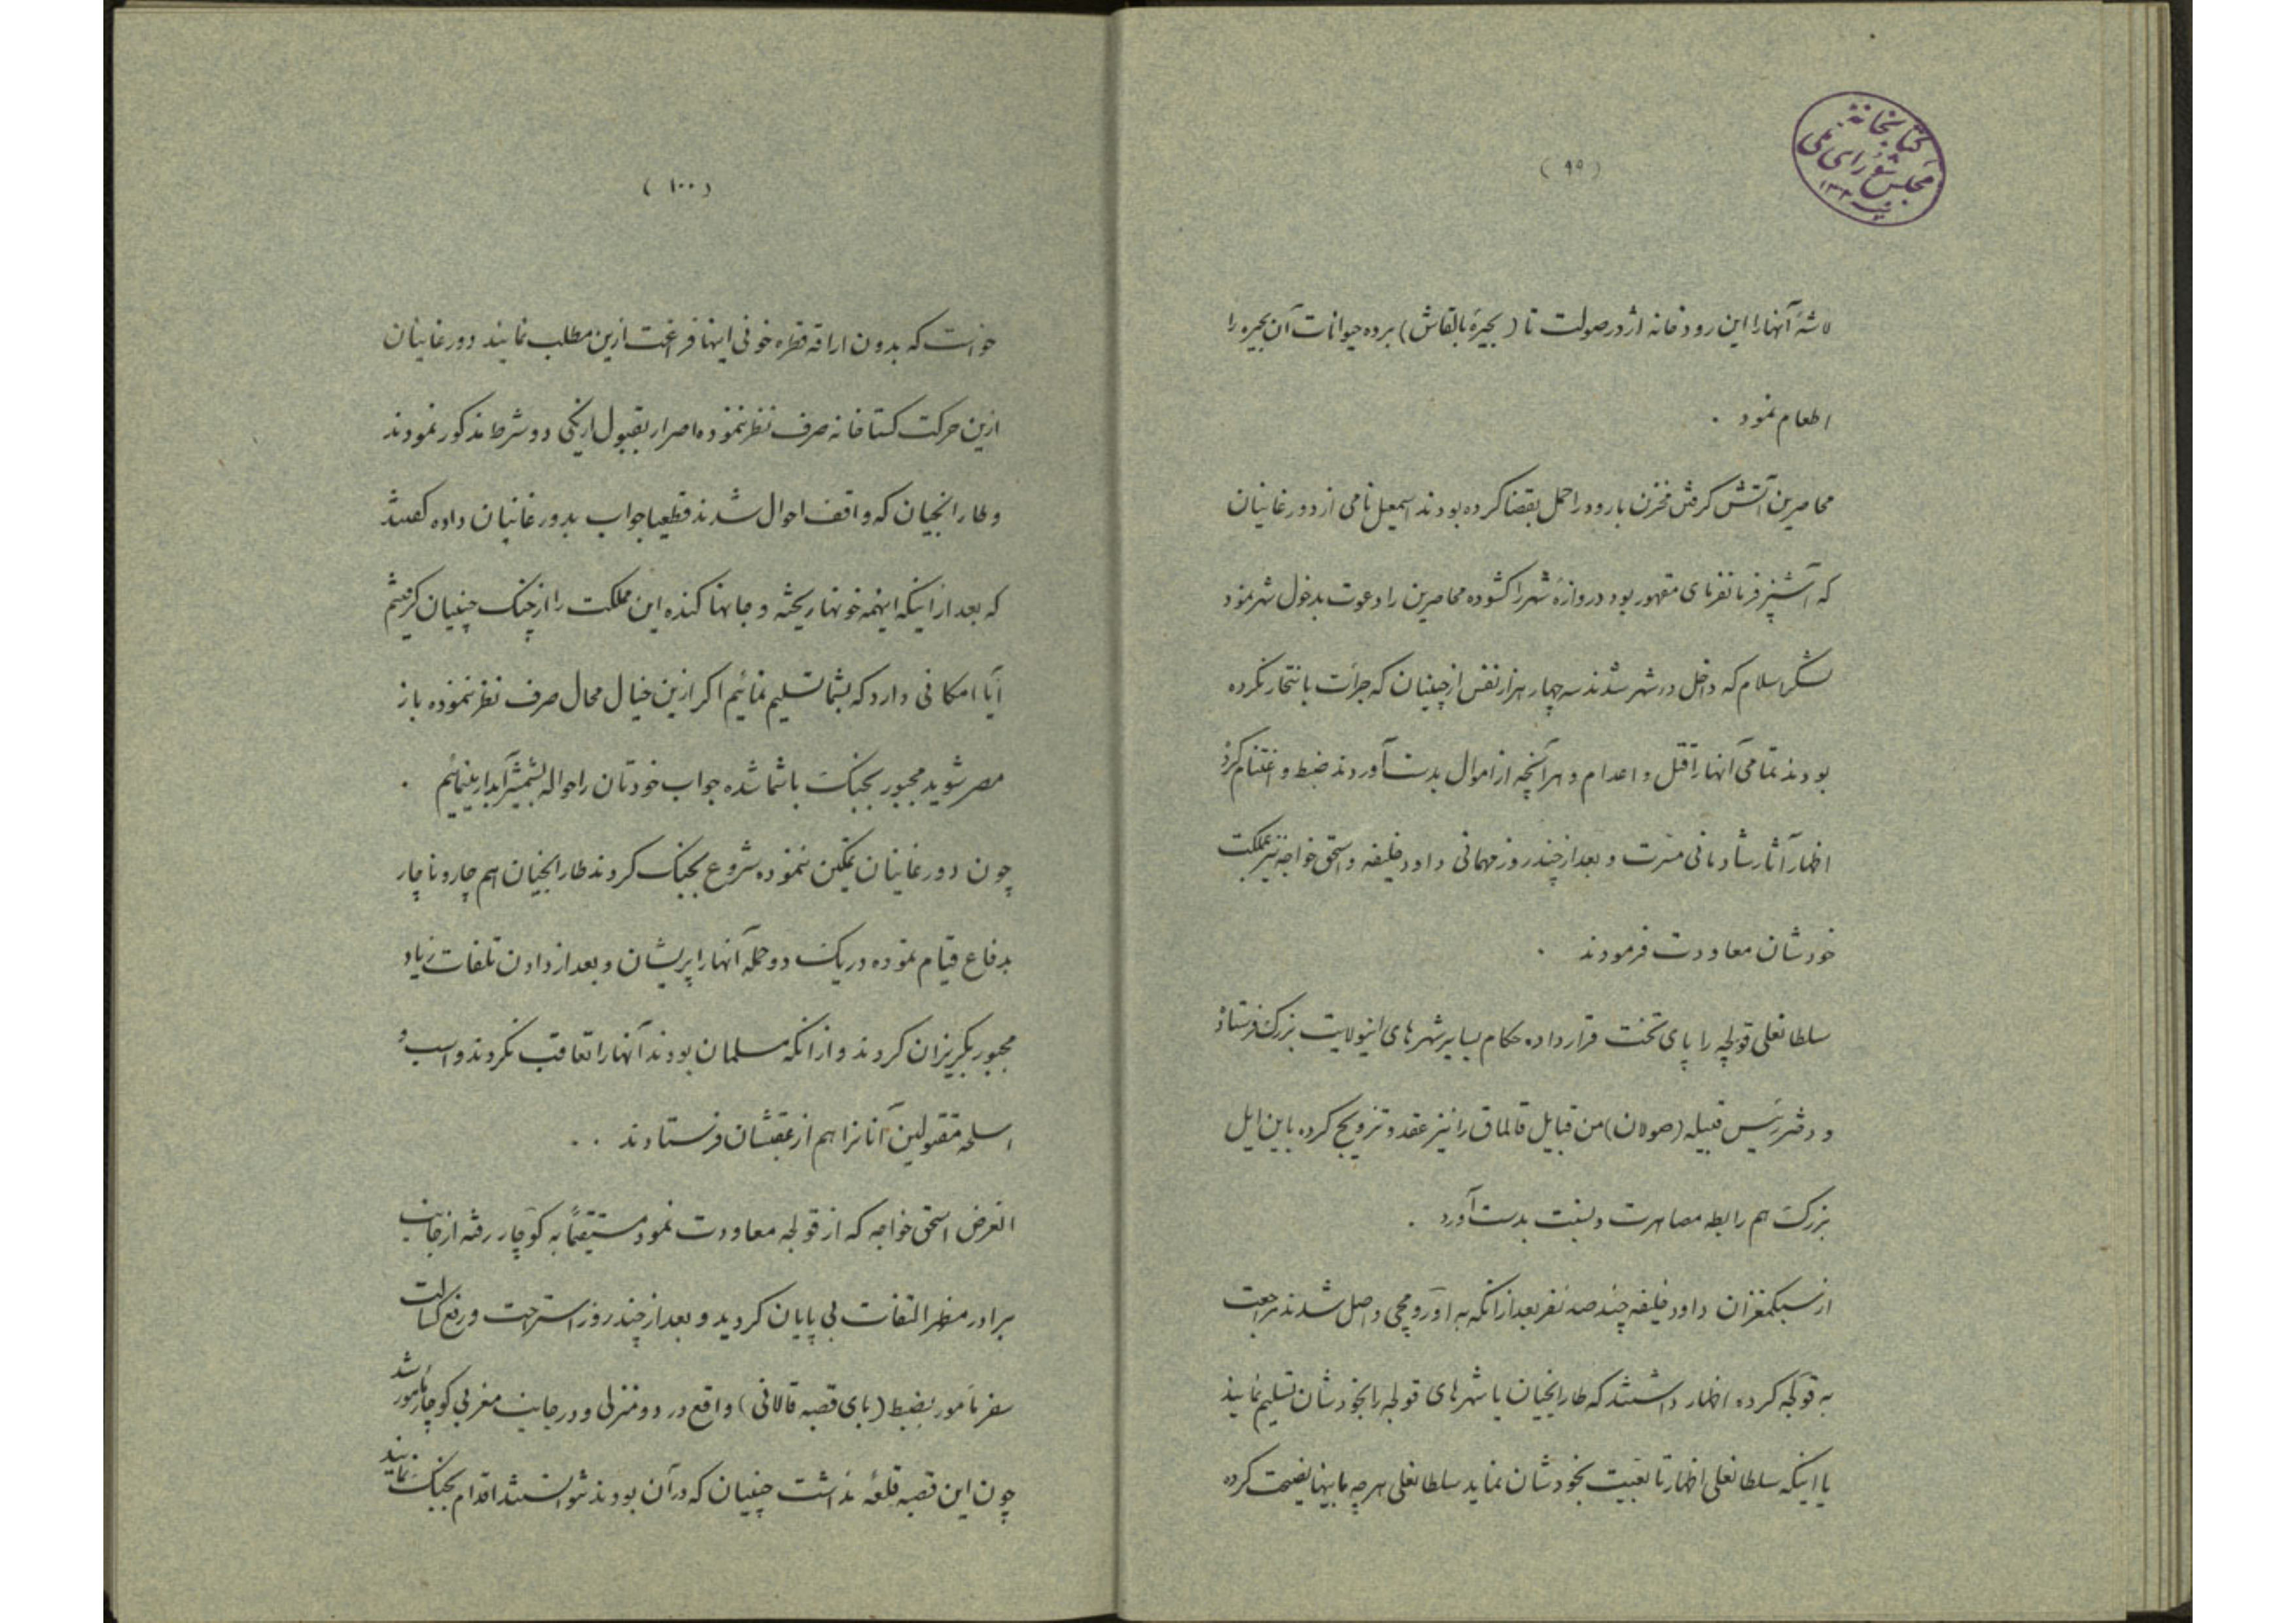 کتابخانه
مجلس شورای ملی
(٩٩)
لاشهٔ آنها را این رودخانه اژدر صولت تا (بحیرهٔ بالقاش) برده حیوانات آن بحیره را
اطعام نمود .
محاصرین آتش گرفتن مخزن بارود را حمل بقضا کرده بودند اسمعیل نامی از دورغانیان
که آشپز فرمانفرمای مقهور بود دروازهٔ شهر را کشوده محاصرین را دعوت بدخول شهر نمود
لشکر اسلام که داخل در شهر شدند سه چهار هزار نفس از چینیان که جرأت بانتحار نکرده
بودند تمامی آنها را قتل و اعدام و هر آنچه از اموال بدست آوردند ضبط و اغتنام کرد
اظهار آثار شادمانی مسرت و بعد از چند روز مهمانی داود خلیفه و اسحق خواجه نیز بمملکت
خودشان معاودت فرمودند .
سلطانعلی قولجه را پای تخت قرار داده حکام بسایر شهرهای اینولایت بزرک فرستاد
و دختر رئیس قبیله (صولان) من قبایل قالماق را نیز عقد و تزویج کرده باین ایل
بزرک هم رابطه مصاهرت و نسبت بدست آورد .
از سبکمغزان داود خلیفه چند صد نفر بعد از انکه به اورومچی واصل شدند مراجعت
به قولجه کرده اظهار داشتند که طارانجیان یا شهرهای قولجه را بخودشان تسلیم نمایند
یا اینکه سلطانعلی اظهار تابعیت بخودشان نماید سلطانعلی هر چه باینها نصیحت کرده
(١٠٠)
خواست که بدون اراقه قطره خونی اینها فراغت ازین مطلب نمایند دورغانیان
ازین حرکت کستاخانه صرف نظر ننموده اصرار بقبول از یکی دو شرط مذکور نمودند
و طارانجیان که واقف احوال شدند قطعیا جواب بدورغانیان داده کفتند
که بعد از اینکه اینهمه خونها ریخته و جانها کنده این مملکت را از چنک چینیان کرفتیم
آیا امکانی دارد که بشما تسلیم نمائیم اکر ازین خیال محال صرف نظر ننموده باز
مصر شوید مجبور بجنک باشما شده جواب خودتان را حواله بشمشیر آبدار مینمائیم .
چون دورغانیان تمکین ننموده شروع بجنک کردند طارانجیان هم چار و ناچار
بدفاع قیام نموده در یک دو حمله آنها را پریشان و بعد از دادن تلفات زیاد
مجبور بکریزان کردند و از انکه مسلمان بودند آنها را تعاقب نکردند و اسب و
اسلحه مقتولین آنانرا هم از عقبشان فرستادند . .
الغرض اسحق خواجه که از قولجه معاودت نمود مستقیماً به کوچار رفته از جانب
برادر مظهر التفات بی پایان کردید و بعد از چند روز استراحت و رفع کسالت
سفر مأمور بضبط (بای قصبه قالانی) واقع در دو منزلی و در جانب مغربی کوچار مأمور شد
چون این قصبه قلعه نداشت چینیان که در آن بودند نتوانستند اقدام بجنک نمایند